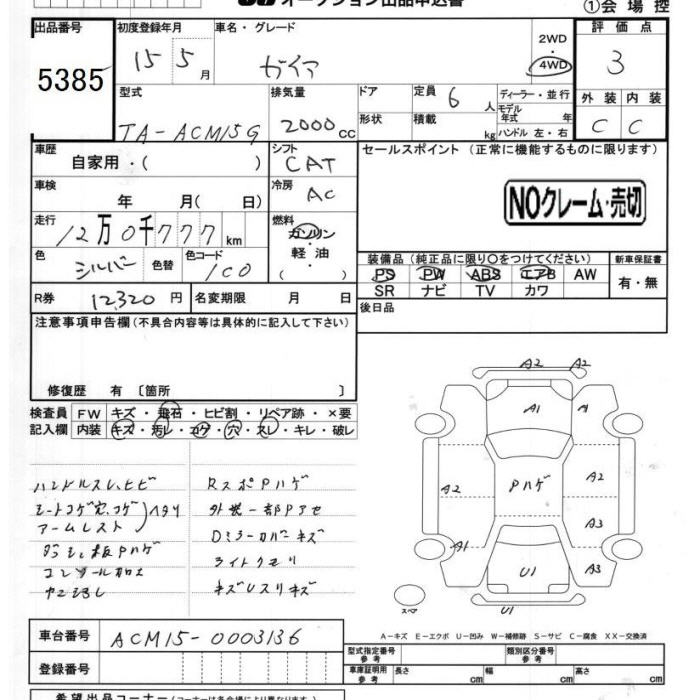 オークション出品申込書
①会場控
出品番号 初度登録年月 車名・グレード 評価点
5385 15 5 月 ガイア 2WD・4WD 3
型式 排気量 ドア 定員 6 人 ディーラー・並行 外装 内装
TA-ACM15G 2000 cc 形状 積載 kg モデル年式 年 ハンドル 左・右 C C
車歴 自家用・( ) シフト CAT セールスポイント (正常に機能するものに限ります)
車検 年 月( 日) 冷房 AC NOクレーム・売切
走行 12万0千777 km 燃料 ガソリン
軽油
( ・ )
色 シルバー 色替 色コード 1C0
装備品 (純正品に限り○をつけてください) 新車保証書
PS PW ABS エアB AW 有・無
SR ナビ TV カワ
R券 12,320 円 名変期限 月 日 後日品
注意事項申告欄 (不具合内容等は具体的に記入して下さい)
修復歴 有 〔箇所 〕
検査員 FW キズ・飛石・ヒビ割・リペア跡・×要
記入欄 内装 キズ・汚レ・コゲ・穴・スレ・キレ・破レ
ハンドルスレ、ヒビ RスポPハゲ
シートコゲ穴、コゲ 外装一部Pアセ
アームレスト ヘタリ Dミラーカバーキズ
ダッシュ板Pハゲ ライトクモリ
キズUスリキズ
A2 A2
A1 A1
A2 Pハゲ A2
A3
A1 U1 A3
スペア U1
A-キズ E-エクボ U-凹み W-補修跡 S-サビ C-腐食 XX-交換済
車台番号 ACM15-0003136
型式指定番号 参考 類別区分番号 参考
登録番号 車庫証明用 参考 長さ cm 幅 cm 高さ cm
希望出品コーナー (コーナーは各会場により異なります)